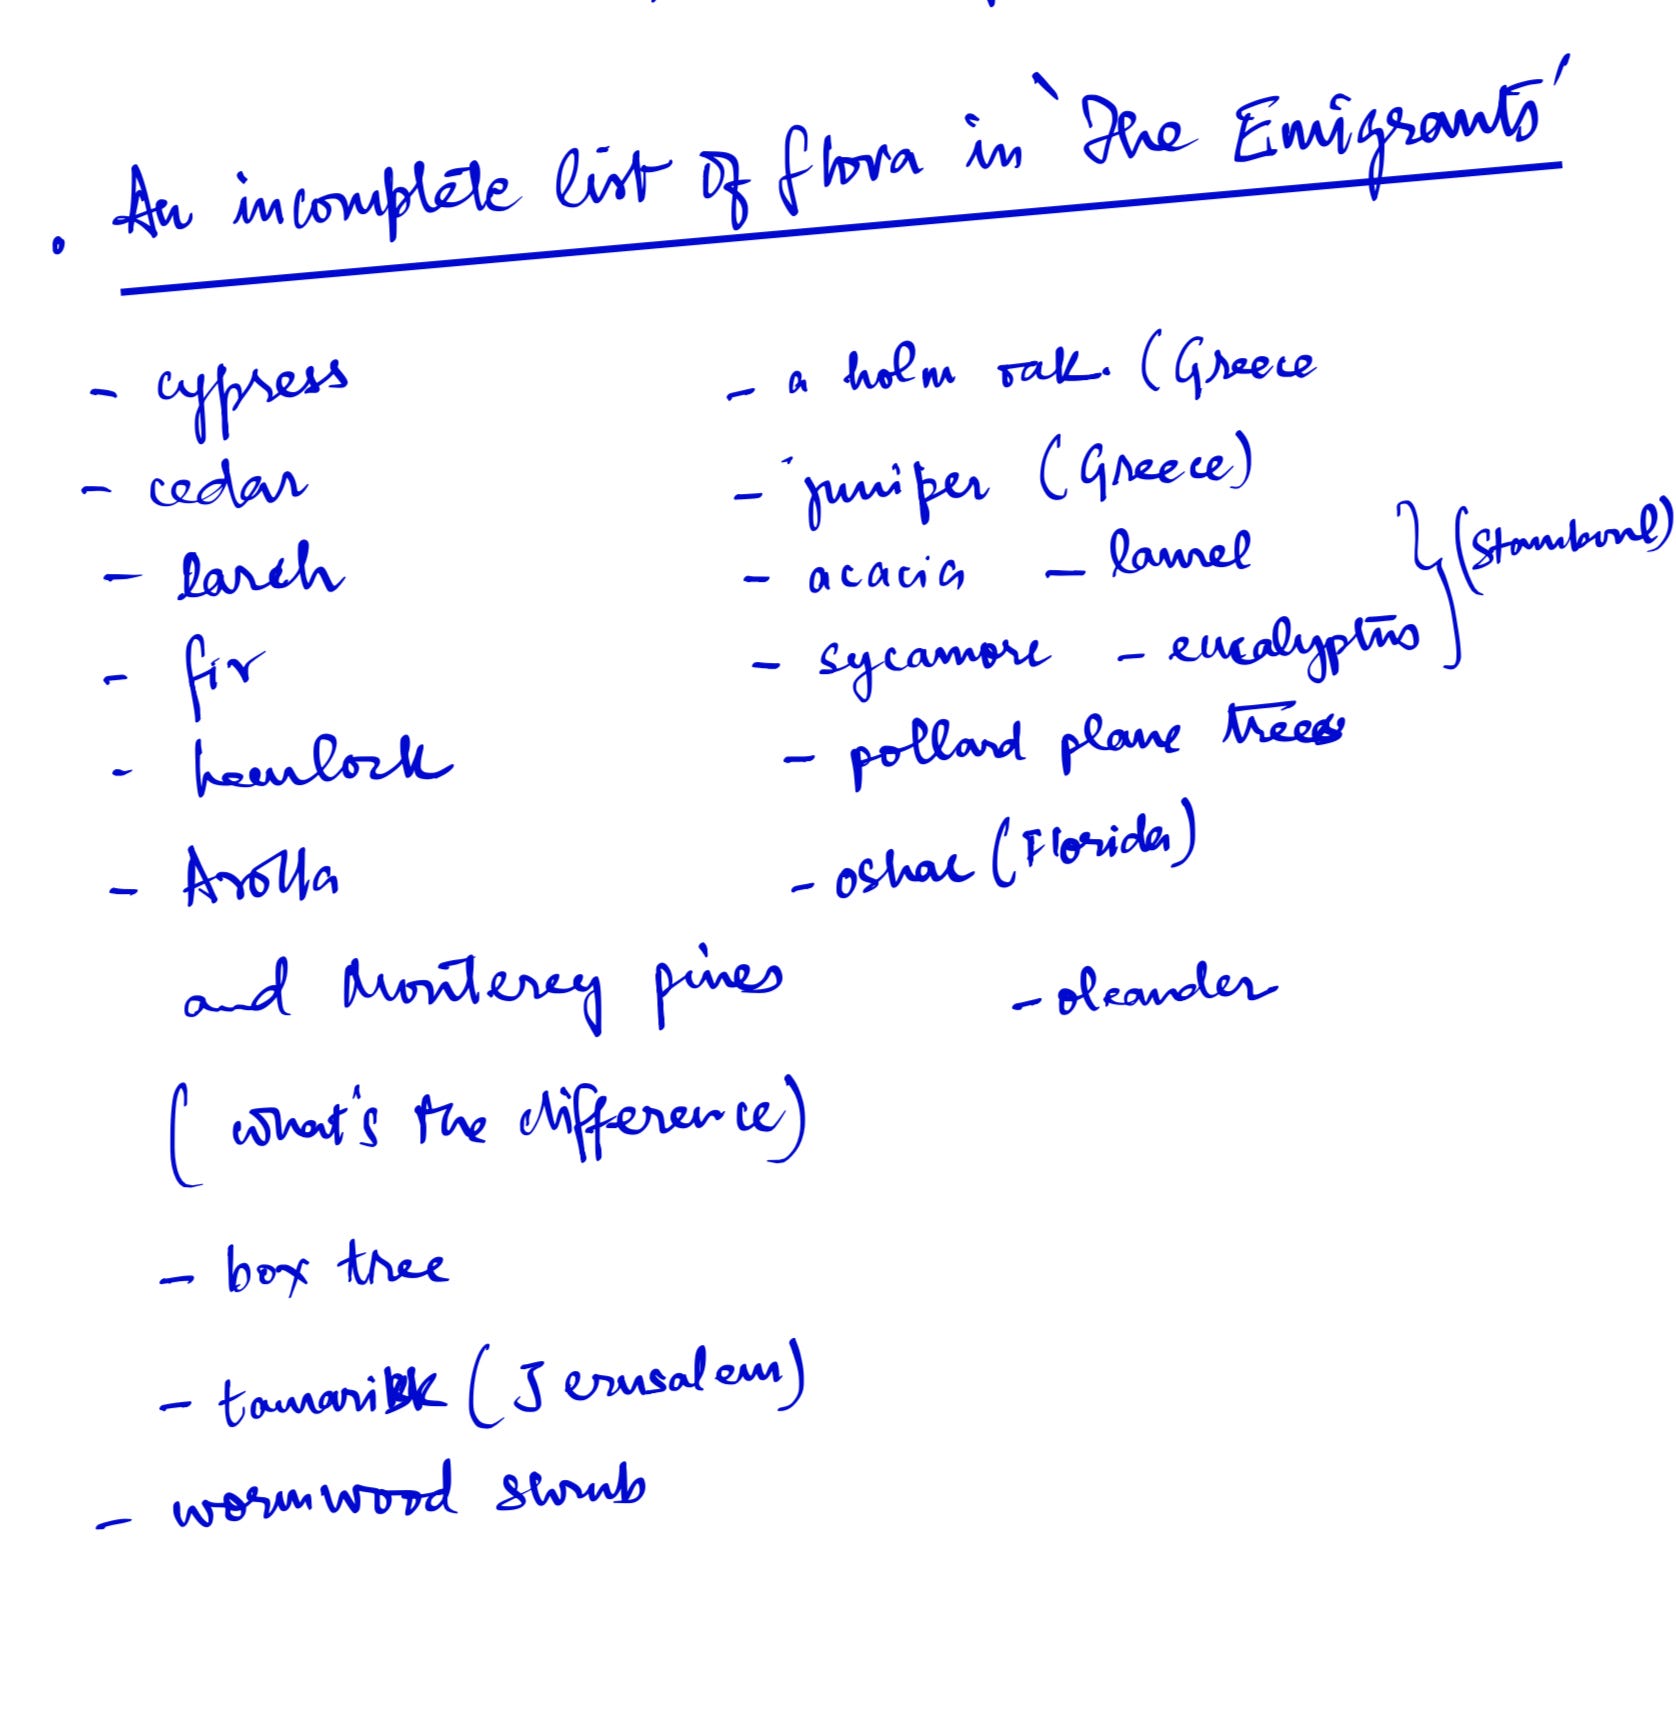 . An incomplete list of flora in 'The Emigrants'
- cypress
- cedar
- larch
- fir
- hemlock
- Arolla
and Monterey pines
(what's the difference)
- box tree
- tamarisk (Jerusalem)
- wormwood shrub
- a holm oak. (Greece
- juniper (Greece)
- acacia - laurel
- sycamore - eucalyptus } (Stamboul)
- pollard plane trees
- oshac (Florida)
- oleander